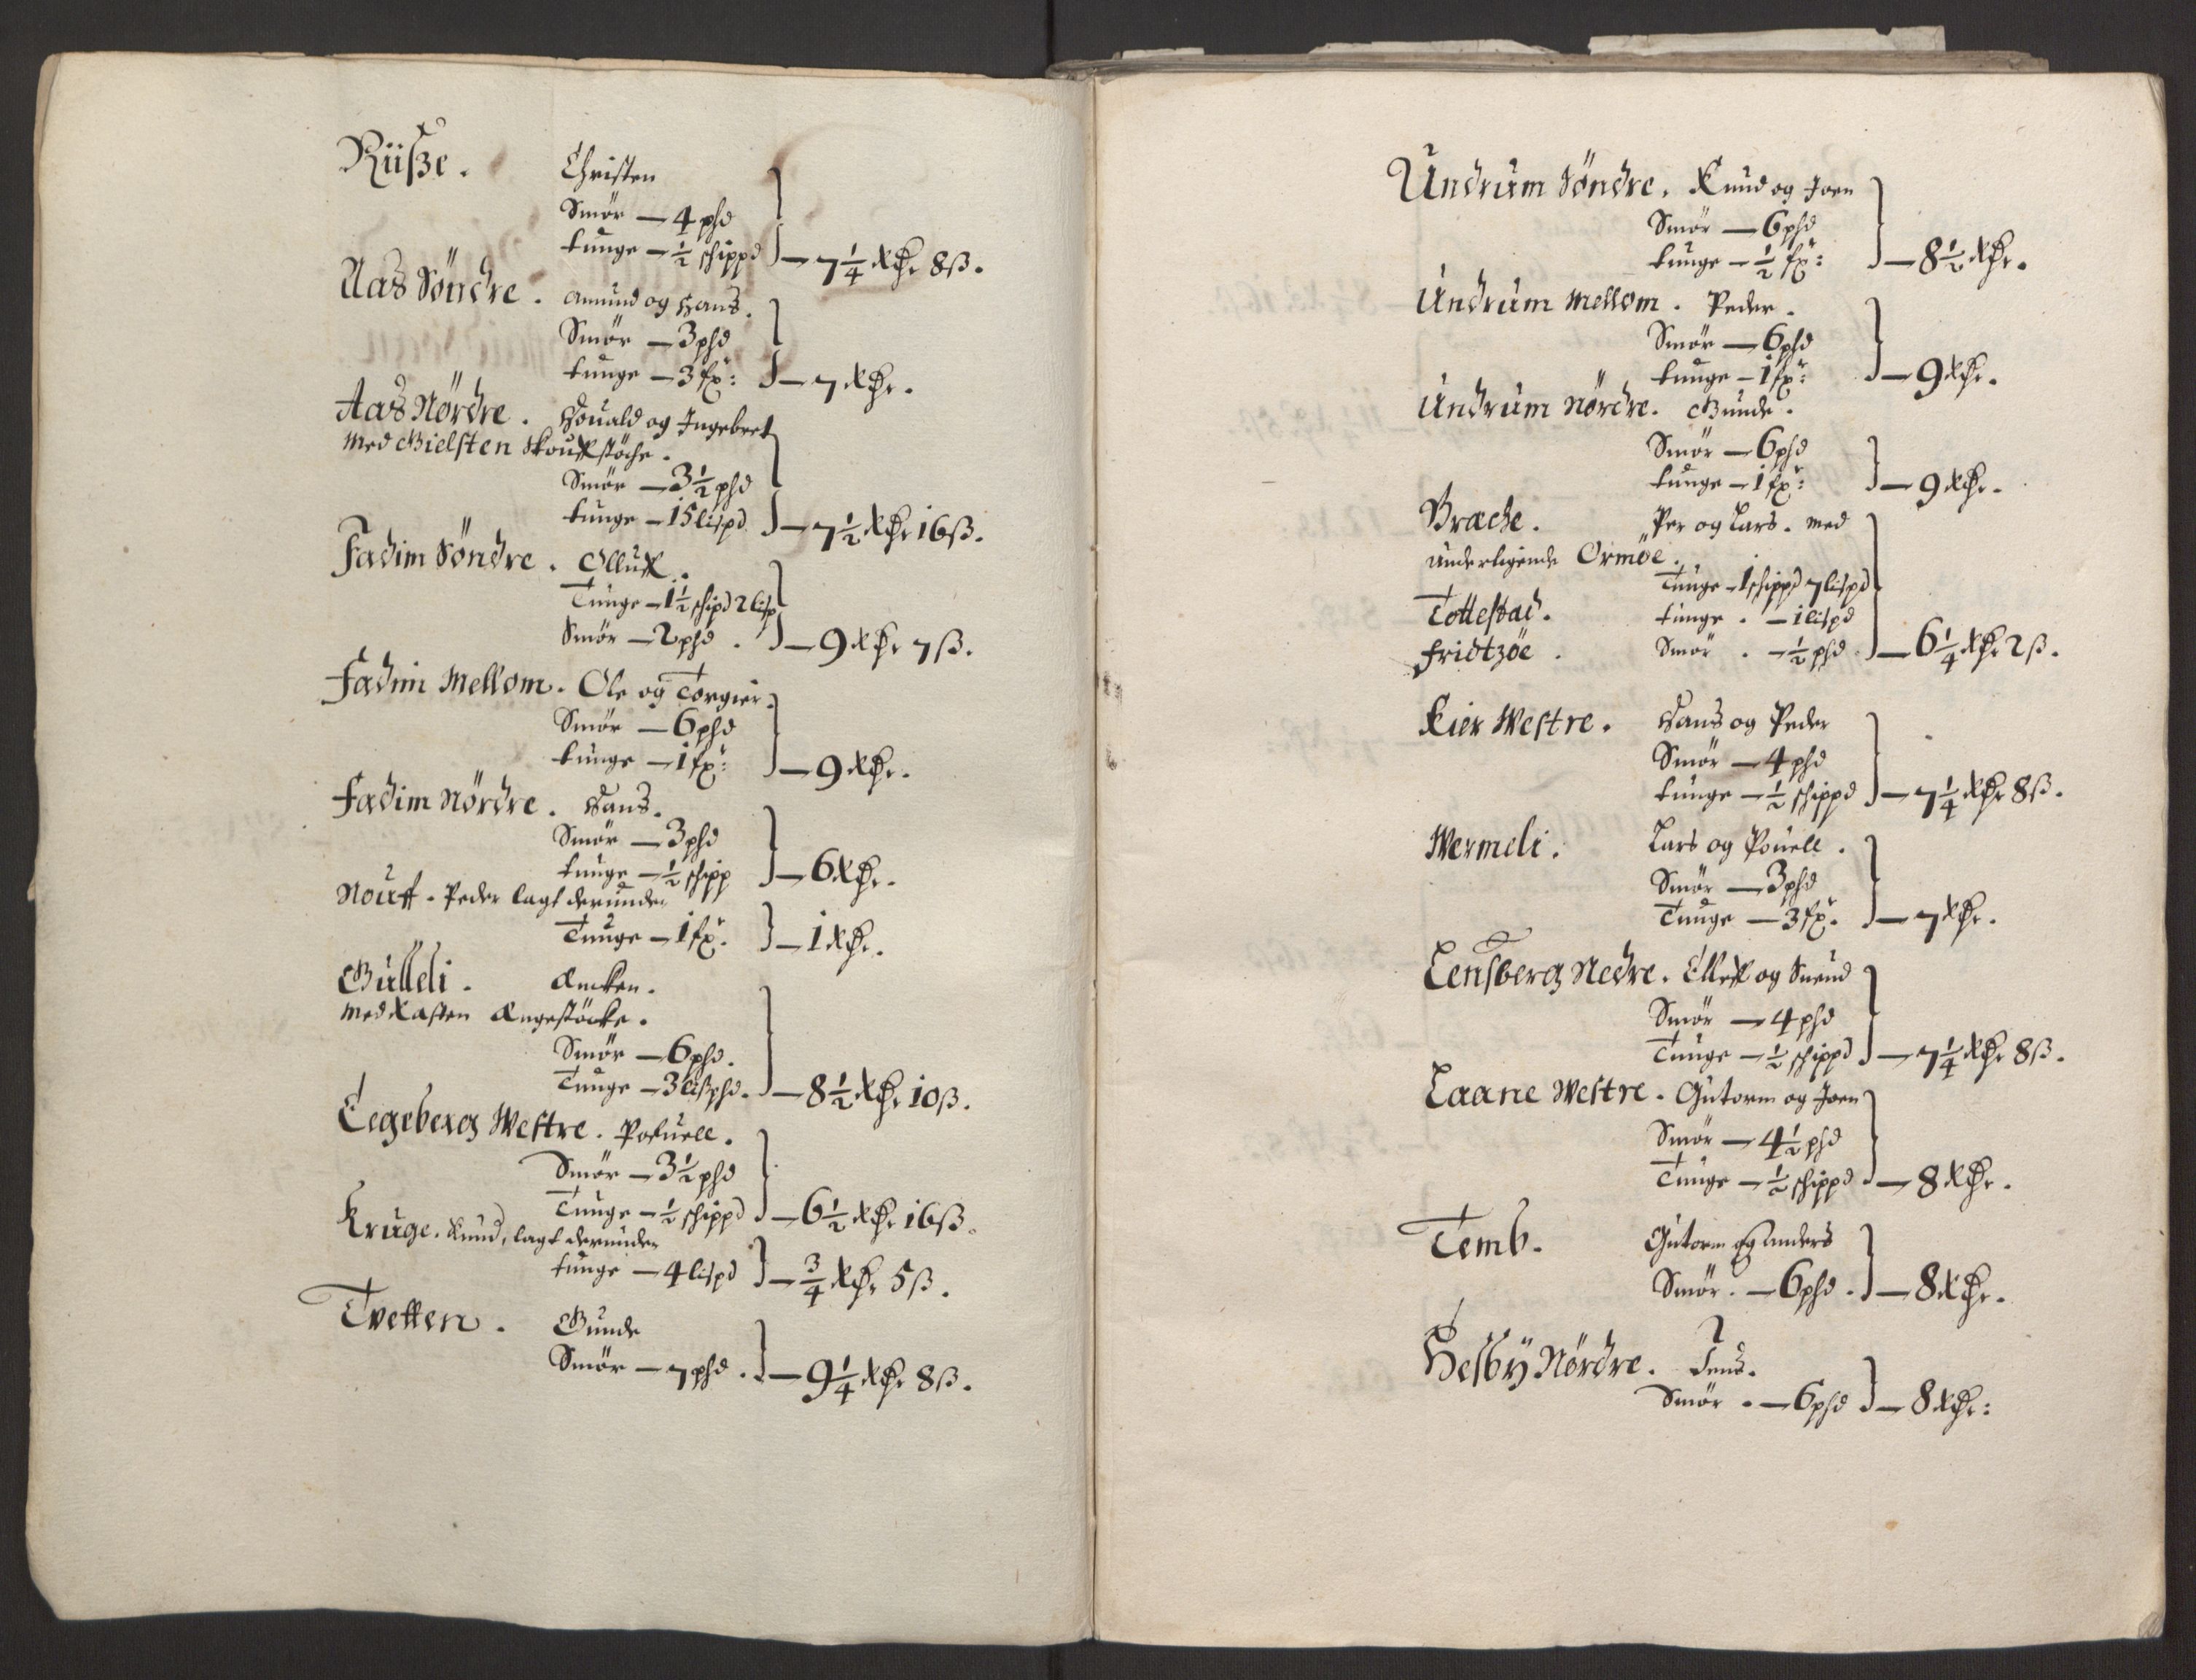 Rüsße. Christen
Smör — 4 phd
tunge — ½ schippd — 7¼ Rdr 8 ß.
Aas Söndre. Amund og Hans.
Smör — 3 phd
tunge — 3 fr: — 7 Rdr.
Aas Nördre. Houald og Ingebret
Med Gielsten Skougstöche.
Smör — 3½ phd
tunge — 15 lispd — 7½ Rdr 16 ß.
Fadim Söndre. Olluff.
Tunge — 1½ schipd 2 lisp
Smör — 2 phd. — 9 Rdr 7 ß.
Fadim Mellom. Ole og Torgier.
Smör — 6 phd
tunge — 1 fr: — 9 Rdr.
Fadim Nördre. Hans.
Smör — 3 phd
tunge — ½ schipp — 6 Rdr.
Nouff. Peder lagt derunder
Tunge — 1 fr. — 1 Rdr.
Gulleli. Ancken.
med Kasten Engestöcke.
Smör — 6 phd.
Tunge — 3 lißphd. — 8½ Rdr 10 ß.
Eegeberg Westre. Pofuell.
Smör — 3½ phd
Tunge — ½ schippd — 6½ Rdr 16 ß.
Kruge. Knud, lagt derunder
tunge — 4 lispd — ¾ Rdr 5 ß.
Tvetten. Gunde
Smör — 7 phd. — 9¼ Rdr 8 ß.
Undrum Söndre. Knud og Joen
Smör — 6 phd
tunge — ½ fr: — 8½ Rdr.
Undrum Mellom. Peder.
Smör — 6 phd
tunge — 1 fr: — 9 Rdr.
Undrum Nördre. Gunde.
Smör — 6 phd
tunge — 1 fr: — 9 Rdr.
Bræche. Per og Lars. med
underligende Ormöe.
Tunge — 1 schippd 7 lispd
Tottestad. tunge. — 1 lispd
Fridtzöe. Smör. — ½ phd. — 6¼ Rdr 2 ß.
Kier Westre. Hans og Peder
Smör — 4 phd
tunge — ½ schippd — 7¼ Rdr 8 ß.
Wermeli. Lars og Pouell.
Smör — 3 phd
Tunge — 3 fr. — 7 Rdr.
Lensberg Nedre. Elleff og Suend
Smör — 4 phd
Tunge — ½ schippd — 7¼ Rdr 8 ß.
Laane Westre. Gutorm og Joen
Smör — 4½ phd
Tunge — ½ schippd — 8 Rdr.
Temb. Gutorm og Anders
Smör. — 6 phd. — 8 Rdr.
Hesby Nördre. Jens.
Smör. — 6 phd — 8 Rdr: